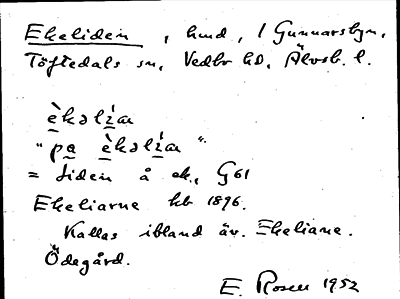 Ekeliden, hmd, 1 Gunnarsbyn,
Töftedals sn, Vedbo hd, Älvsb. l.
èkəlɩ́an
"pa èkəlɩ́an".
= liden å ek, G61
Ekeliarne kb 1896.
Kallas ibland äv. Ekeliane.
Ödegård.
E. Rosen 1952